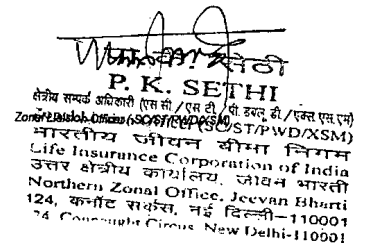 सेठी
P. K. SETHI
क्षेत्रीय सम्पर्क अधिकारी (एस सी/एस टी/पी. डबलू. डी/एक्स एस एम)
Zonal Liaison Officer (SC/ST/PWD/XSM)
भारतीय जीवन बीमा निगम
Life Insurance Corporation of India
उत्तर क्षेत्रीय कार्यालय, जीवन भारती
Northern Zonal Office, Jeevan Bharti
124, कनॉट सर्कस, नई दिल्ली-110001
24, Connaught Circus, New Delhi-110001